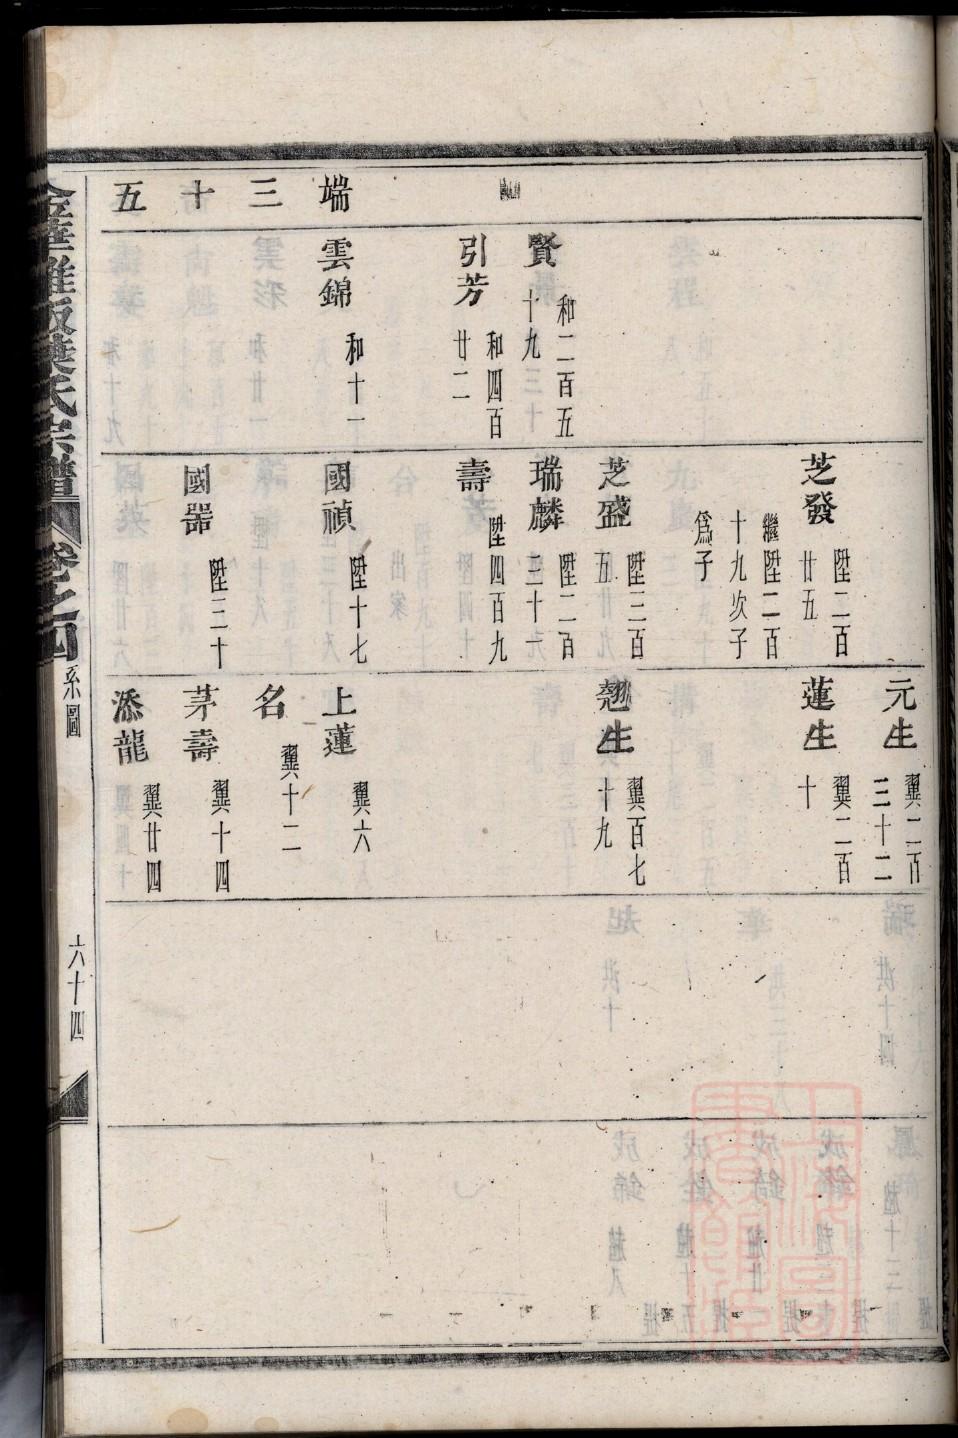 端三十五
元生 翼二百三十二
芝發 陞二百廿五
蓮生 翼二百十
繼陞二百十九次子爲子
芝盛 陞三百五
翹生 翼百七十九
賢 和二百五十九
瑞麟 陞二百三十一
引芳 和四百廿二
壽 陞四百九
雲錦 和十一
國禎 陞十七
上蓮 翼六
名 翼十二
國器 陞三十
茅壽 翼十四
添龍 翼廿四
葉氏宗譜 卷之四 系圖 六十四